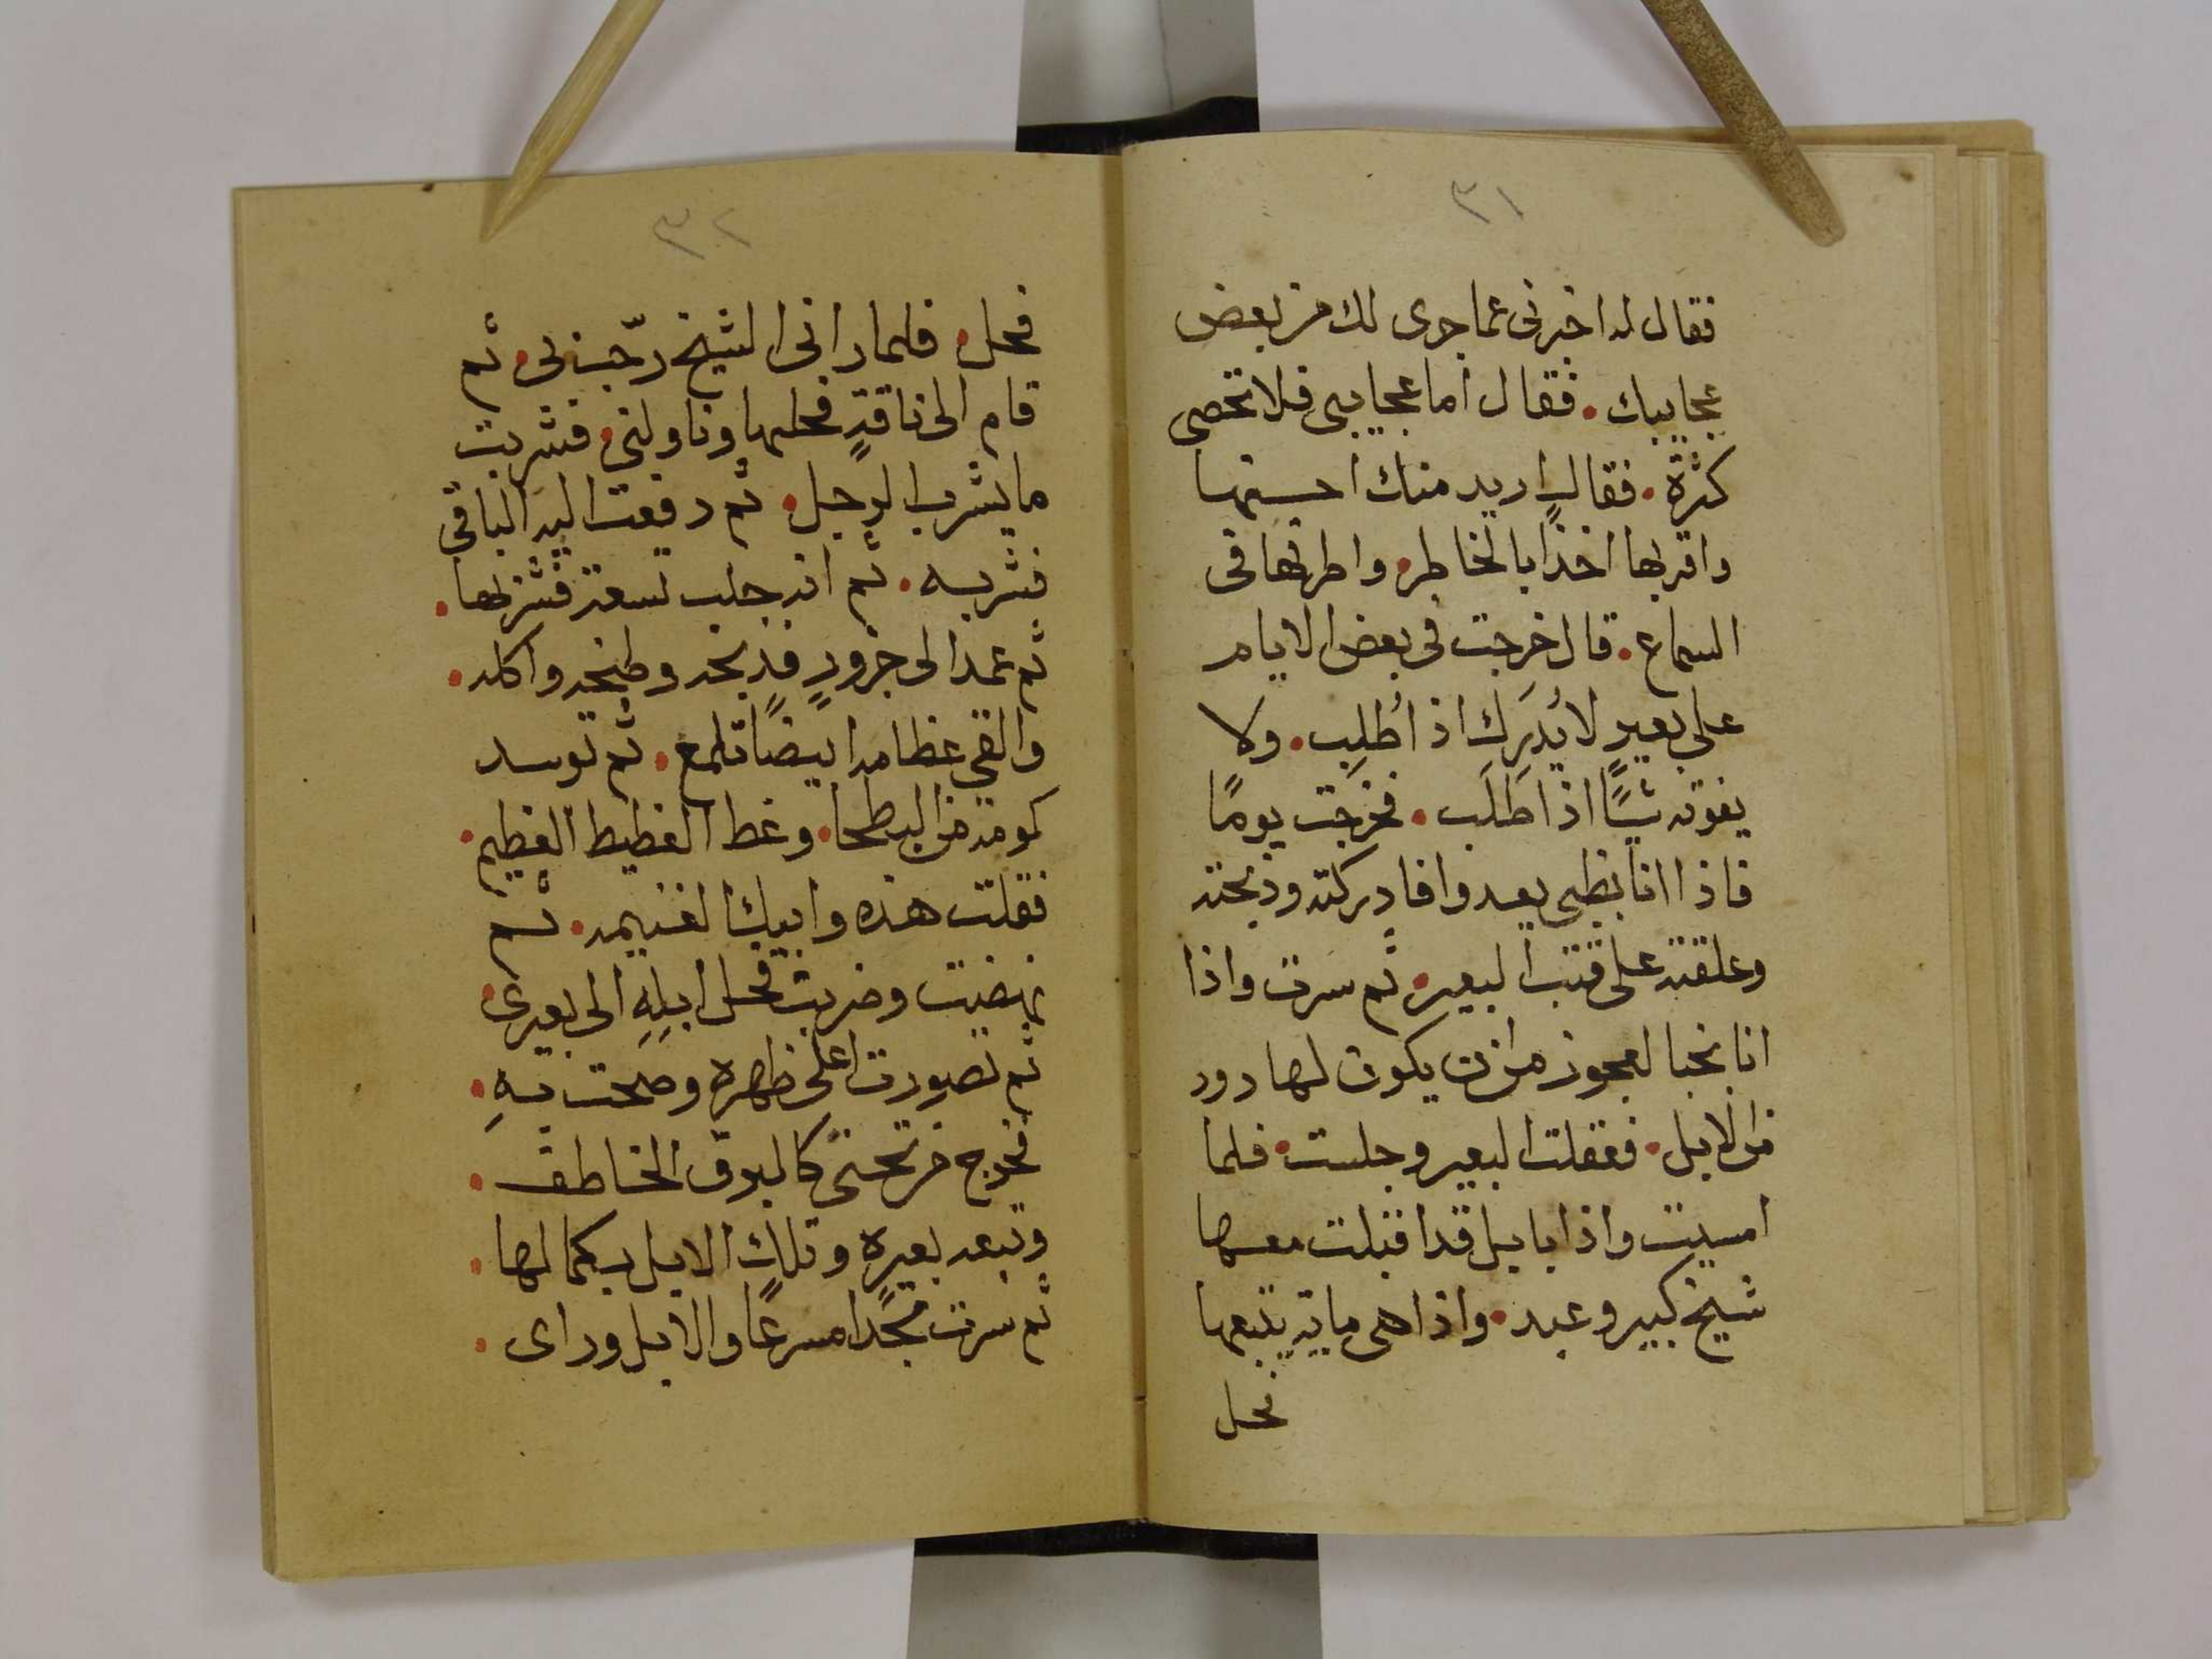 ٣١
فقال له اخبرنى عما جرى لك من بعض
عجايبك. فقال أما عجايبى فلا تحصى
كثرة. فقال اريد منك احسنها
واقربها اخذًا بالخاطر. واطرفها فى
السماع. قال خرجت فى بعض الايام
على بعيرٍ لا يُدرَك اذ اُطلِب. ولا
يفوته شيئًا اذا طَلَب. فخرجت يومًا
فاذا انا بظبى يعدوا فادركته وذبحته
وعلقته على قتب البعير. ثم سرت واذا
انا بخبا لعجوز من ان يكون لها دود
من الابل. فعقلت البعير وجلست. فلما
امسيت واذا بابل قد اقبلت معها
شيخ كبير وعبد. واذا هى ماية يتبعها
فحل
٣٢
فحل. فلما رانى الشيخ رحّب بى. ثم
قام الى ناقةٍ فحلبها وناولنى. فشربت
ما يشرب الرجل. ثم دفعت اليه الباقى
فشربه. ثم انه جلب تسعة فشربها.
ثم عمد الى جزورٍ فذبحه وطبخه واكله.
والقى عظامه ابيضًا تلمع. ثم توسد
كومة من البطحا. وغط الغطيط العظيم.
فقلت هذه وابيك الغنيمه. ثم
نهضت وضربت فحل ابلِهِ الى بعيرى.
ثم تصورت اعلى ظهره وصحت بهِ.
فخرج من تحتى كالبرق الخاطف.
وتبعه بعيره وتلك الابل بكمالها.
ثم سرت مجدًا مسرعًا والابل وراى.